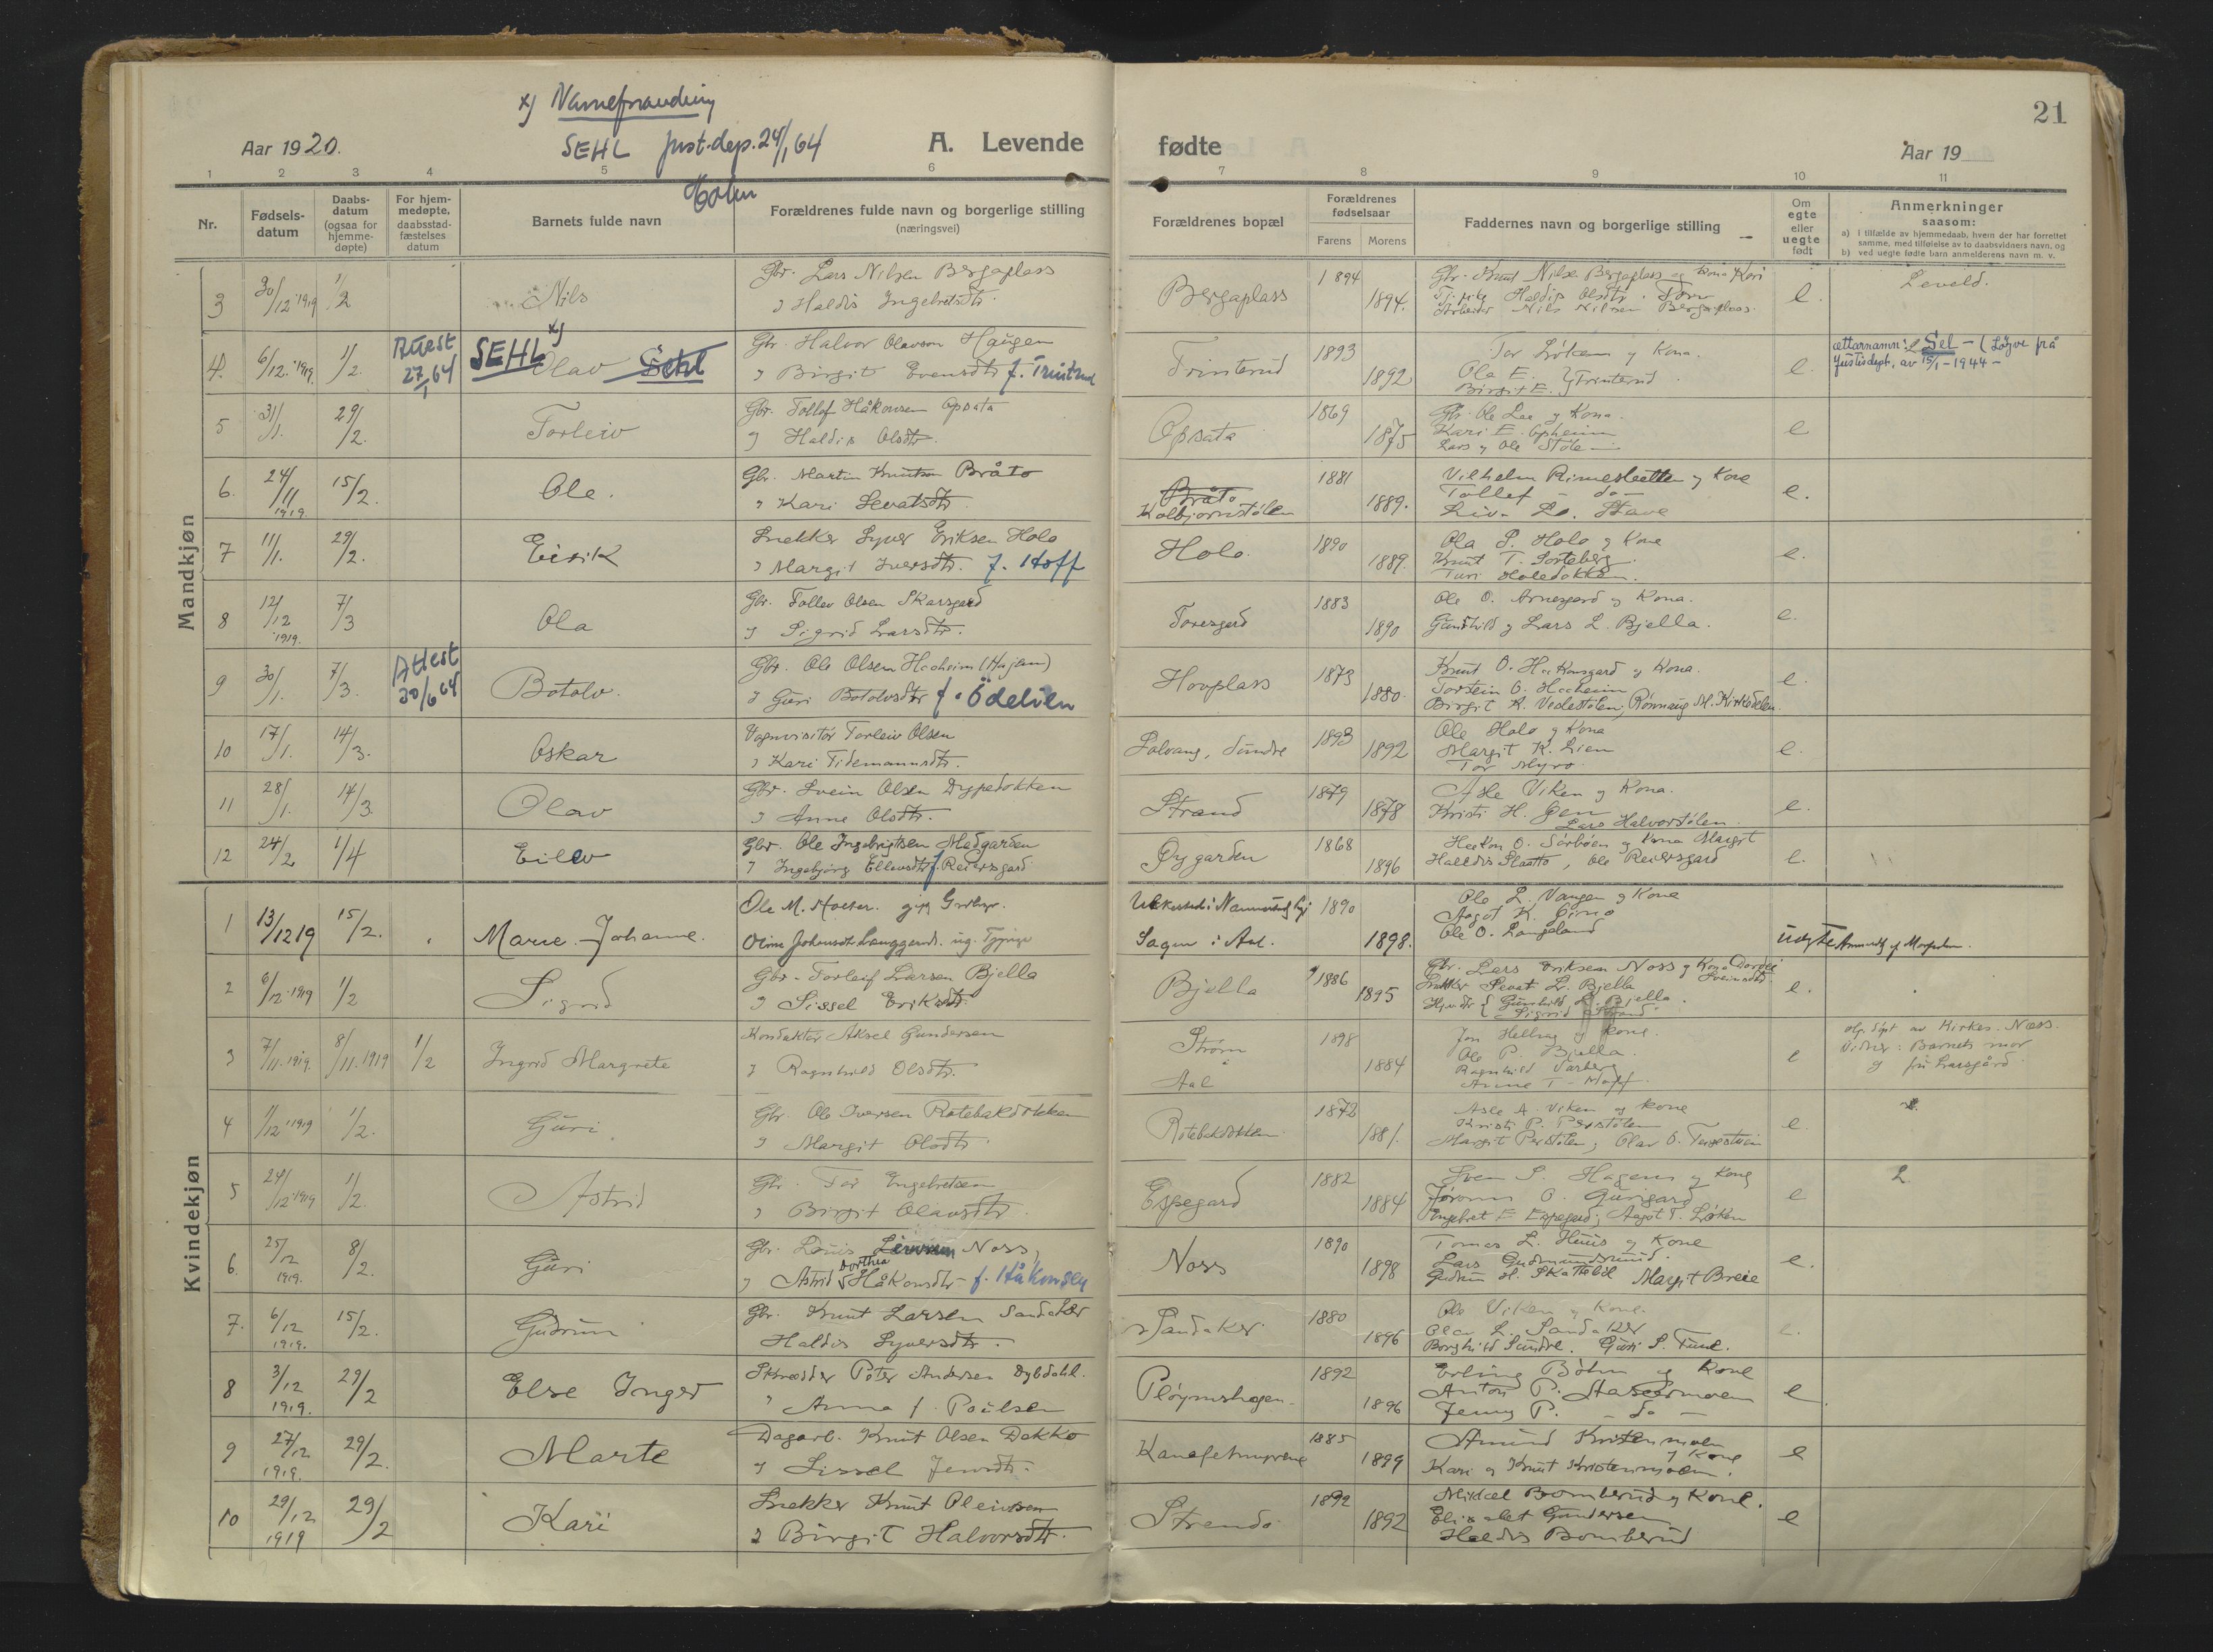 x) Namneforandring
SEHL Just.dep. 24/1 64
Aar 1920. A. Levende fødte Aar 19
21
1 2 3 4 5 6 7 8 9 10 11
Nr. Fødsels-datum Daabs-datum (ogsaa for hjemme-døpte) For hjem-medøpte, daabsstad-fæstelses datum Barnets fulde navn Forældrenes fulde navn og borgerlige stilling (næringsvei) Forældrenes bopæl Forældrenes fødselsaar Farens Morens Faddernes navn og borgerlige stilling Om egte eller uegte født Anmerkninger saasom:
a) i tilfælde av hjemmedaab, hvem der har forrettet samme, med tilføielse av to daabsvidners navn, og
b) ved uegte fødte barn anmelderens navn m. v.
Mandkjøn
3 30/12 1919 1/2 Nils Gbr. Lars Nilsen Bergaplass
Haldis Ingebretsdtr. Bergaplass 1894 1894. Gbr. Knut Nilse Bergaplass og kona Kari
Haldis Olsdtr.
Arbeider Nils Nilsen Bergaplass. e.
4. 6/12 1919. 1/2. Attest 27/1 64 SEHL x) Olav Sehl Gbr. Halvor Olavson Haugen
Birgit Evensdtr f. Trintrud Trinterud 1893 1892 Tor Løken og Kona.
Ola E.
Birgit E. } Trinterud e. ættarnamn: Sel - (Løyve frå
Justisdept. av 15/1-1944-
5 31/1. 29/2. Torleiv Gbr. Tollef Håkonsen Opsata
Haldis Olsdtr. Opsata 1869 1875 Gbr. Ole Lee og Kona.
Kari E. Opheim
Lars og Ole Støle e
6. 24/11 1919. 15/2. Ole. Gbr. Martin Knutson Bråto
Kari Sevatsdtr. Bråto
Kolbjørnstølen 1881 1889. Vilhelm Rimeslaatten og Kone
Tollef - do -
e.
7 11/1. 29/2. Eirik Snekker Syver Eriksen Holo
Margit Iversdtr. f. Hoff Holo. 1890 1889. Ola S. Holo og Kone
Knut T. Sorteberg.
Turi Holedokken. e.
8 12/12 1919. 7/3 Ola Gbr. Tollev Olsen Skarsgard
Sigrid Larsdtr. Toresgard 1883 1890 Ole O. Arnegard og Kona.
Gunhild og Lars L. Bjella. e.
9 30/1. 7/3. Attest 30/6 64 Botolv. Gbr. Ole Olsen Hooheim (Hajem)
Guri Botolvsdtr f. Ødelien Hovplass 1873 1880. Knut O. Haakonsgard og Kona.
Torstein O. Hooheim
Birgit K. Vedestølen, Rønnaug M. Kirkedelen. e.
10 17/1. 14/3. Oskar Vognvisitør Torleiv Olsen
Kari Tidemannsdtr. Solvang, Sundre 1893 1892 Ole Holo og Kona
Margit K. Lien
Tor Myro. e.
11 28/1. 14/3. Olav Gbr. Svein Olsen Dypedokken
Anne Olsdtr. Strand 1879 1878 Asle Viken og Kona.
Kristi H. Øen
Lars Halvorstølen e.
12 24/2 1/4 Eilev Gbr. Ole Ingebrigtsen Medgarden
Ingebjørg Ellevsdtr f. Reiersgard Øygarden 1868 1896 Haakon O. Sørbøen og Kona Margit
Halldis Slaatto, Ole Reiersgard e.
Kvindekjøn
1 13/12 19 15/2. Marie Johanne. Ole M.
Sagen i Aal. 1890 1898. Ole L. Vangen og Kone
Aagot K.
Ole O. Langeland uægte
2 6/12 1919 1/2 Sigrid Gbr. Torleif Larsen Bjella
Sissel Eriksdtr. Bjella 1886 1895 Gbr. Lars Eriksen Noss og Kona Dordei Sveinsdtr.
Snekker Sevat L. Bjella
Gunhild L. Bjella
Sigrid e.
3 7/11. 1919. 8/11. 1919 1/2 Ingrid Margrete Konduktør Aksel Gundersen
Ragnhild Olsdtr. Strøm
Aal 1898 1884 Jon Helling og kone.
Ole P. Bjella.
Ragnhild Varberg
Anne T. Hoff. e døpt av Kirkes. Næss.
Vidner: Barnets mor
og fru Larsgård.
4 1/12 1919 1/2. Guri Gbr. Ole Iversen Rotebakdokken
Margit Olsdtr. Rotebakdokken 1872 1881. Asle A. Viken og kone
Kristi P. Perstølen
Margit Perstølen, Olav O. e.
5 24/12 1919 1/2. Astrid Gbr. Tor Engebretsen
Birgit Olavsdtr. Espegard 1882 1884 Sven S. Hagen og Kone
Jørann O. Gurigard
Engebret E Espegard; Aagot T. Løken e 2.
6. 25/12 1919. 8/2. Guri Gbr. Louis Noss,
Astrid Dorthea Håkonsdtr. f. Håkonsen Noss 1890 1898 Tomas L. Huus og Kone
Lars Gudmundsrud.
Gudrun H. Skattebøl Margit Breie e.
7. 6/12 1919. 15/2. Gudrun Gbr. Knut Larsen Sandaker
Haldis Syversdtr. Sandaker 1880 1896 Ole Viken og Kone.
Olav L. Sandaker
Borghild Sundre. Guri S. e.
8 3/12 1919. 29/2 Else Inger Skrædder Peter Andersen Dybdahl.
Anna f. Paulsen Pløymshagen. 1892 1896 Erling Bøhn og Kone
Anton P.
Jenny P. - do - e
9 27/12 1919. 29/2. Marte Dagarb. Knut Olsen Dekko
Sissel Jensdtr. 1885 1899 Amund Kristenmoen og Kone
Kari og Knut Kristenmoen. e
10 29/12 1919 29/2 Kari Snekker Knut Oleivsen
Birgit Halvorsdtr. Strando 1892 1892 Mikkel Bomberud og Kone.
Elisabet Gundersen
Haldis Bomberud e